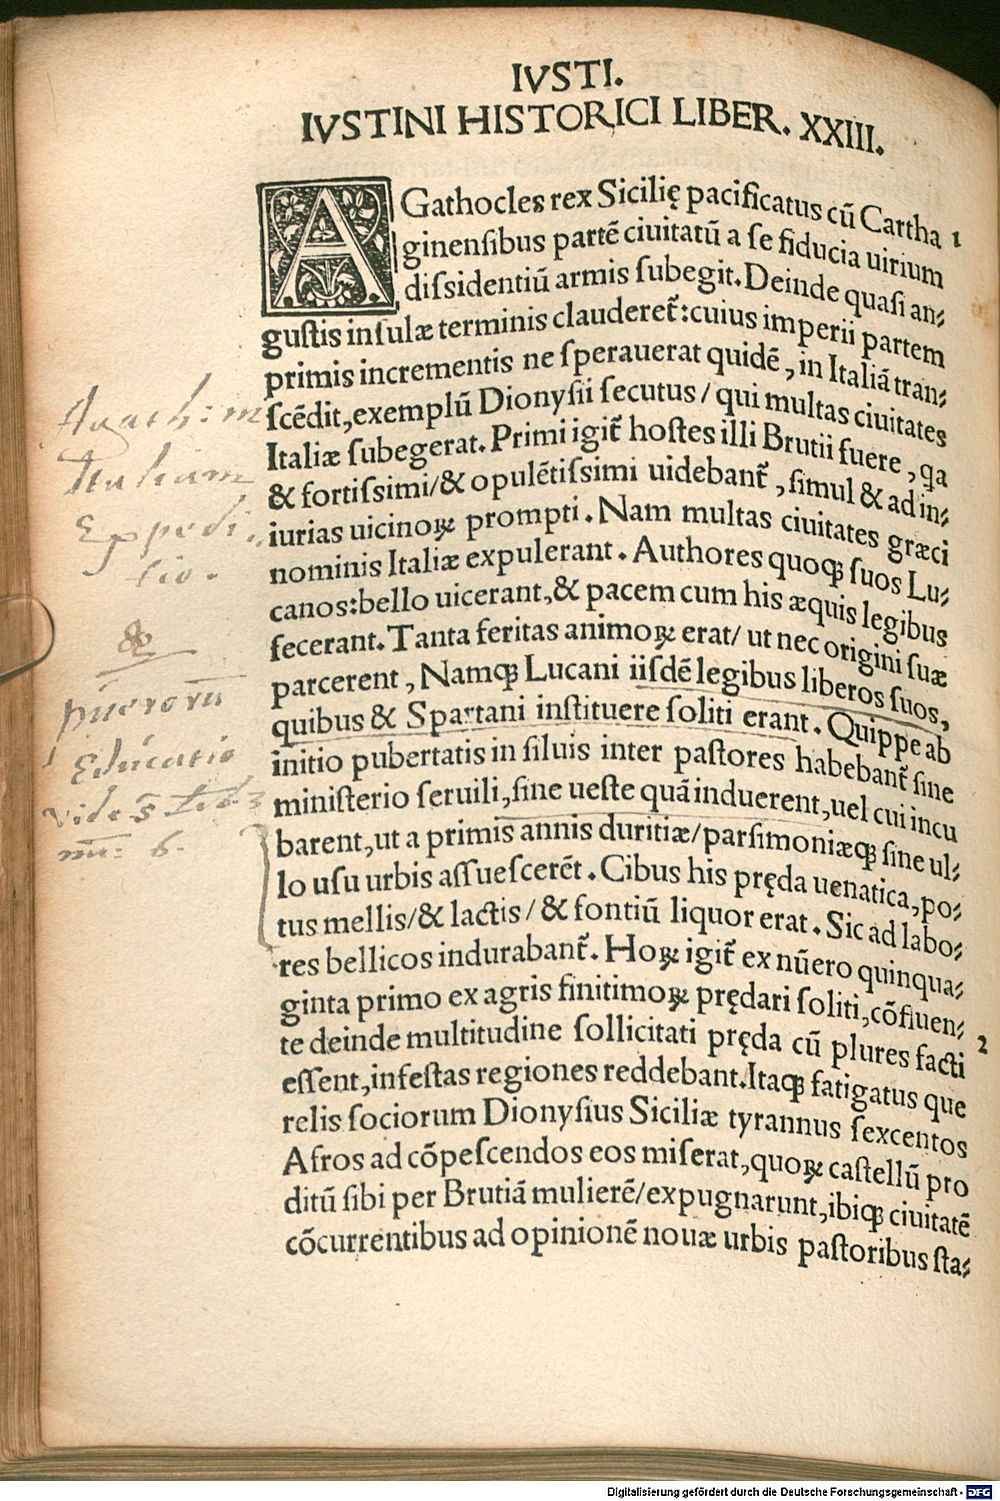 IVSTI.
IVSTINI HISTORICI LIBER. XXIII.
AGathocles rex Sicilię pacificatus cũ Cartha 1
ginenſibus partẽ ciuitatũ a ſe fiducia uirium
diſsidentiũ armis ſubegit. Deinde quaſi an⸗
guſtis inſulæ terminis clauderet̃: cuius imperii partem
primis incrementis ne ſperauerat quidẽ, in Italiã tran⸗
ſcẽdit, exemplũ Dionyſii ſecutus / qui multas ciuitates
Italiæ ſubegerat. Primi igit̃ hoſtes illi Brutii fuere, qa
& fortiſsimi/& opulẽtiſsimi uidebant̃, ſimul & ad in⸗
iurias uicinoꝝ prompti. Nam multas ciuitates græci
nominis Italiæ expulerant. Authores quoqꝫ ſuos Lu⸗
canos: bello uicerant, & pacem cum his æquis legibus
fecerant. Tanta feritas animoꝝ erat/ ut nec origini ſuæ
parcerent, Namqꝫ Lucani iiſdẽ legibus liberos ſuos,
quibus & Spartani inſtituere ſoliti erant. Quippe ab
initio pubertatis in ſiluis inter paſtores habebant̃ ſine
miniſterio ſeruili, ſine ueſte quã induerent, uel cui incu
barent, ut a primis annis duritiæ/parſimoniæqꝫ ſine ul⸗
lo uſu urbis aſſueſcerẽt. Cibus his pręda uenatica, po⸗
tus mellis/& lactis / & fontiũ liquor erat. Sic ad labo⸗
res bellicos indurabant̃. Hoꝝ igit̃ ex nũero quinqua⸗
ginta primo ex agris finitimoꝝ prędari ſoliti, cõfluen⸗
te deinde multitudine ſollicitati pręda cũ plures facti 2
eſſent, infeſtas regiones reddebant. Itaqꝫ fatigatus que
relis ſociorum Dionyſius Siciliæ tyrannus ſexcentos
Afros ad cõpeſcendos eos miſerat, quoꝝ caſtellũ pro
ditũ ſibi per Brutiã mulierẽ/expugnarunt, ibiqꝫ ciuitatẽ
cõcurrentibus ad opinionẽ nouæ urbis paſtoribus ſta⸗
Agath: in
Italiam
Expedi
tio.
&
puerorũ
Educatio
vide s̃ Lib. 3
nũ: 6.
Digitalisierung gefördert durch die Deutsche Forschungsgemeinschaft - DFG